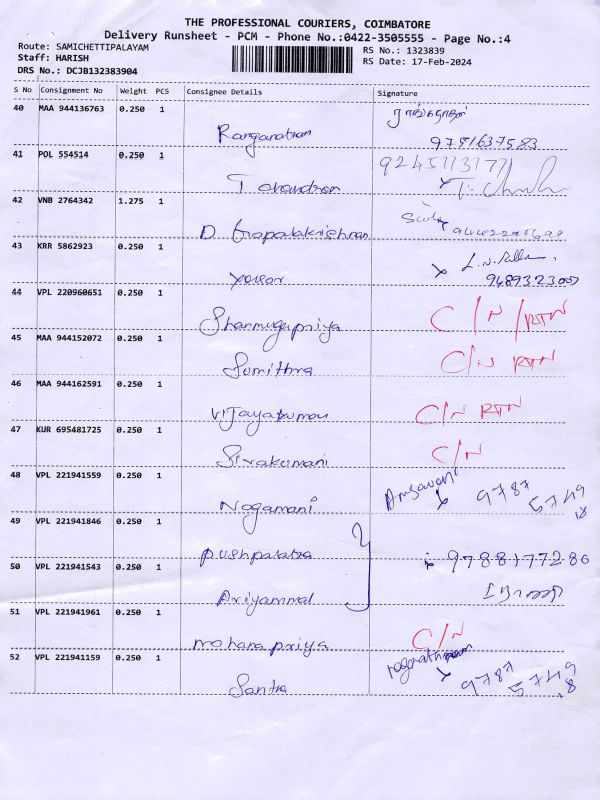 THE PROFESSIONAL COURIERS, COIMBATORE
Delivery Runsheet - PCM - Phone No.:0422-3505555 - Page No.:4
Route: SAMICHETTIPALAYAM
Staff: HARISH
DRS No.: DCJB132383904
RS No.: 1323839
RS Date: 17-Feb-2024
S No Consignment No Weight PCS Consignee Details Signature
40 MAA 944136763 0.250 1
Ranganathan 9751637583
41 POL 554514 0.250 1
9245113177
42 VNB 2764342 1.275 1
D Gopalakrishnan
43 KRR 5862923 0.250 1
44 VPL 220960651 0.250 1
Shanmugapriya C/N/RTN
45 MAA 944152072 0.250 1
Sumithra C/N RTN
46 MAA 944162591 0.250 1
Vijayakumar C/N RTN
47 KUR 695481725 0.250 1
Sivakumani C/N
48 VPL 221941559 0.250 1
Nagamani 9787
49 VPL 221941846 0.250 1
Pushpalatha 9788177286
50 VPL 221941543 0.250 1
Ariyammal
51 VPL 221941961 0.250 1
Mohanapriya C/N
52 VPL 221941159 0.250 1
9787